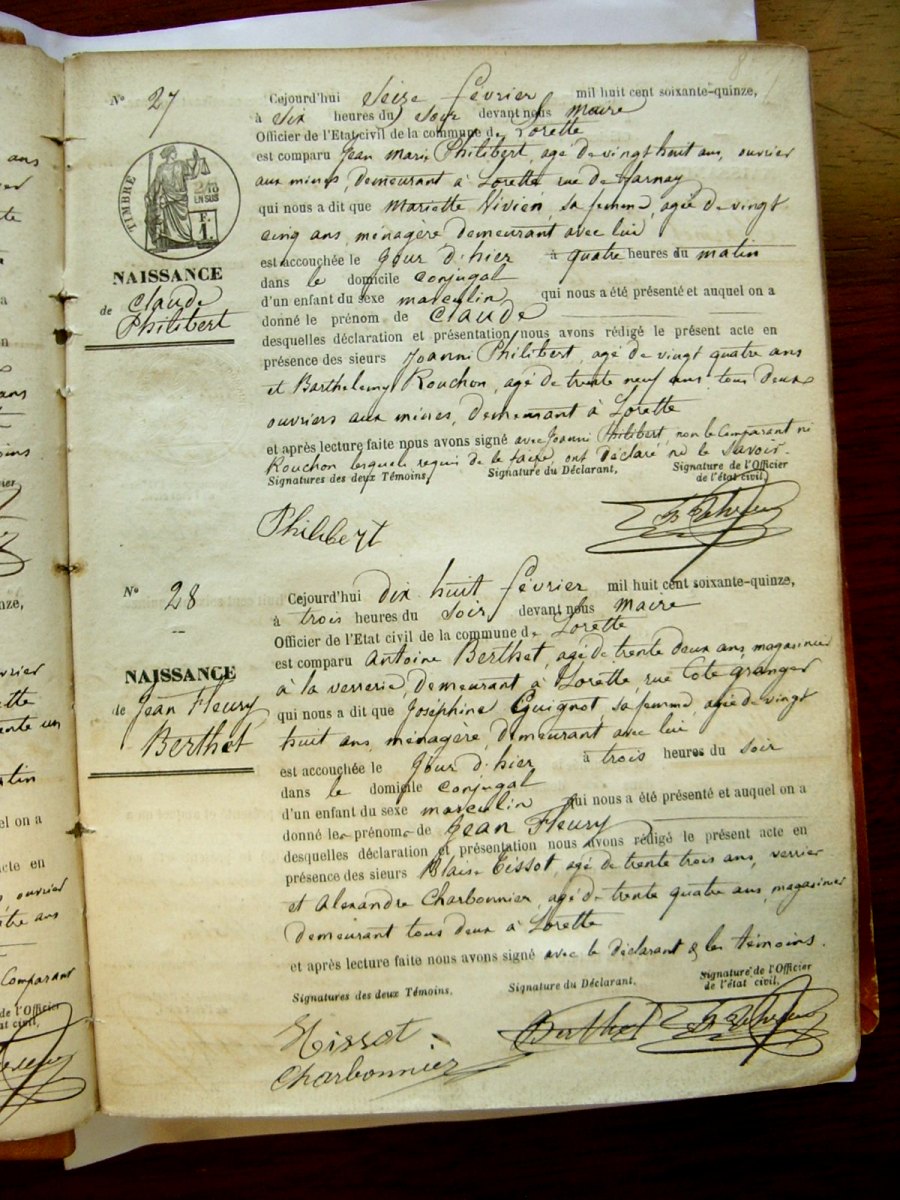 N° 27
Cejourd'hui Seize février mil huit cent soixante-quinze,
à Six heures du Soir devant nous Maire
Officier de l'Etat civil de la commune de Lorette
est comparu Jean Marie Philibert, agé de vingt huit ans, ouvrier
aux mines, demeurant à Lorette rue de
qui nous a dit que Mariette Vivien, sa femme, agée de vingt
cinq ans, ménagère demeurant avec lui
est accouchée le Jour d'hier à quatre heures du matin
dans le domicile conjugal
d'un enfant du sexe masculin qui nous a été présenté et auquel on a
donné le prénom de Claude
desquelles déclaration et présentation nous avons rédigé le présent acte en
présence des sieurs Joanni Philibert, agé de vingt quatre ans
et Barthelemy Rouchon, agé de trente neuf ans tous deux
ouvriers aux mines, demeurant à Lorette
et après lecture faite nous avons signé avec Joanni Philibert, non le Comparant ni
Rouchon lesquels requis de le faire, ont déclaré ne le savoir.
Signatures des deux Témoins, Signature du Déclarant, Signature de l'Officier
de l'état civil,
Philibert
TIMBRE
2/10
EN SUS
F.
1.
NAISSANCE
de Claude
Philibert
N° 28
Cejourd'hui Dix huit février mil huit cent soixante-quinze,
à trois heures du Soir devant nous Maire
Officier de l'Etat civil de la commune de Lorette
est comparu Antoine Berthet, agé de trente deux ans magasinier
à la verrerie, demeurant à Lorette, rue Côte granger
qui nous a dit que Joséphine Guignot sa femme, agée de vingt
huit ans, ménagère, demeurant avec lui
est accouchée le Jour d'hier à trois heures du soir
dans le domicile conjugal
d'un enfant du sexe masculin qui nous a été présenté et auquel on a
donné les prénoms de Jean Fleury
desquelles déclaration et présentation nous avons rédigé le présent acte en
présence des sieurs Blaise Tissot, agé de trente trois ans, verrier
et Alexandre Charbonnier, agé de trente quatre ans, magasinier
demeurant tous deux à Lorette
et après lecture faite nous avons signé avec le déclarant & les témoins.
Signatures des deux Témoins, Signature du Déclarant, Signature de l'Officier
de l'état civil,
Tissot Berthet
Charbonnier
NAISSANCE
de Jean Fleury
Berthet